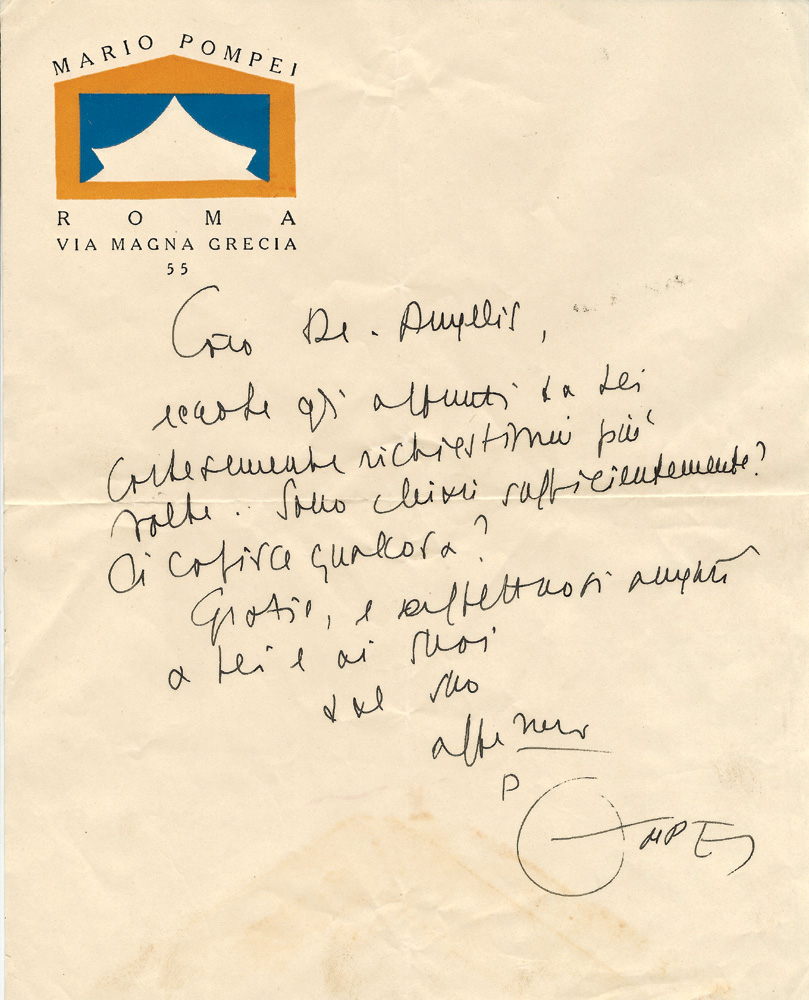 MARIO POMPEI
ROMA
VIA MAGNA GRECIA
55
Caro De. Angelis,
eccole gli appunti da Lei
cortesemente richiestimi più
volte. Sono chiari sufficientemente?
Ci capisce qualcosa?
Grazie, e affettuosi auguri
a Lei e ai suoi
dal suo
aff.mo
POMPEI